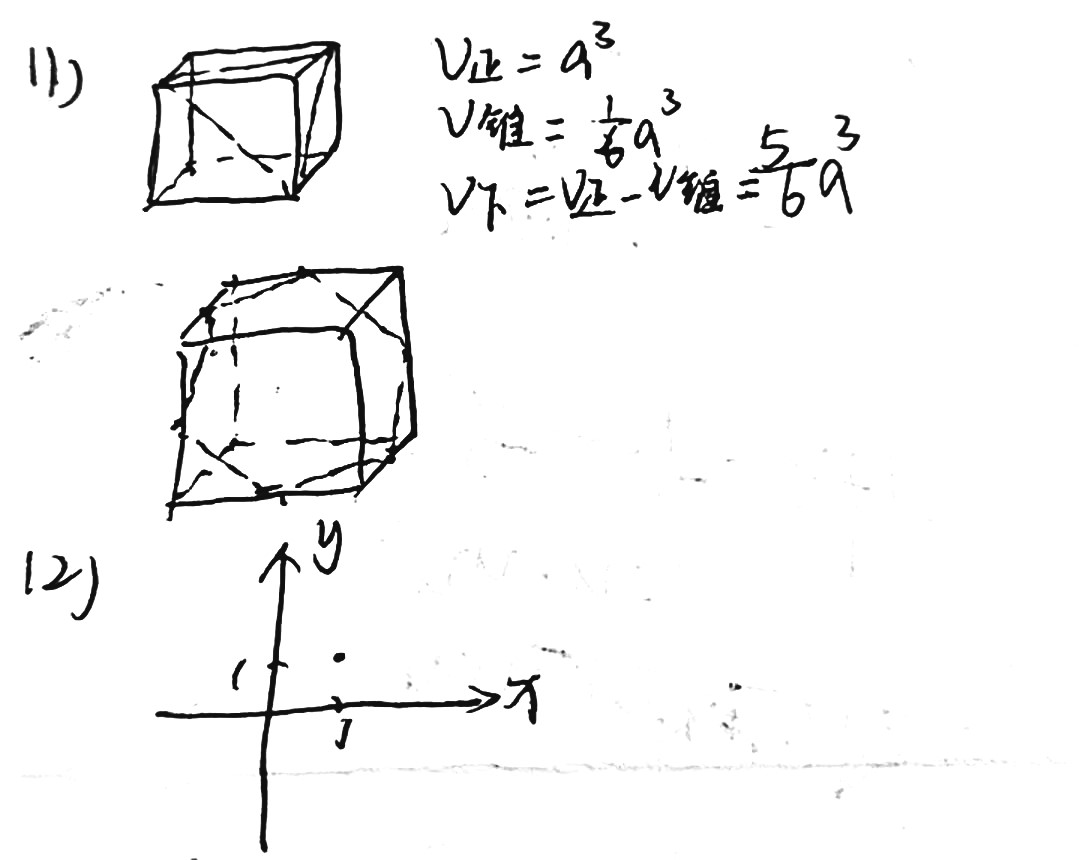 (1)
V正 = a³
V锥 = 1/6 a³
V下 = V正 - V锥 = 5/6 a³
(2)
y
1
x
1